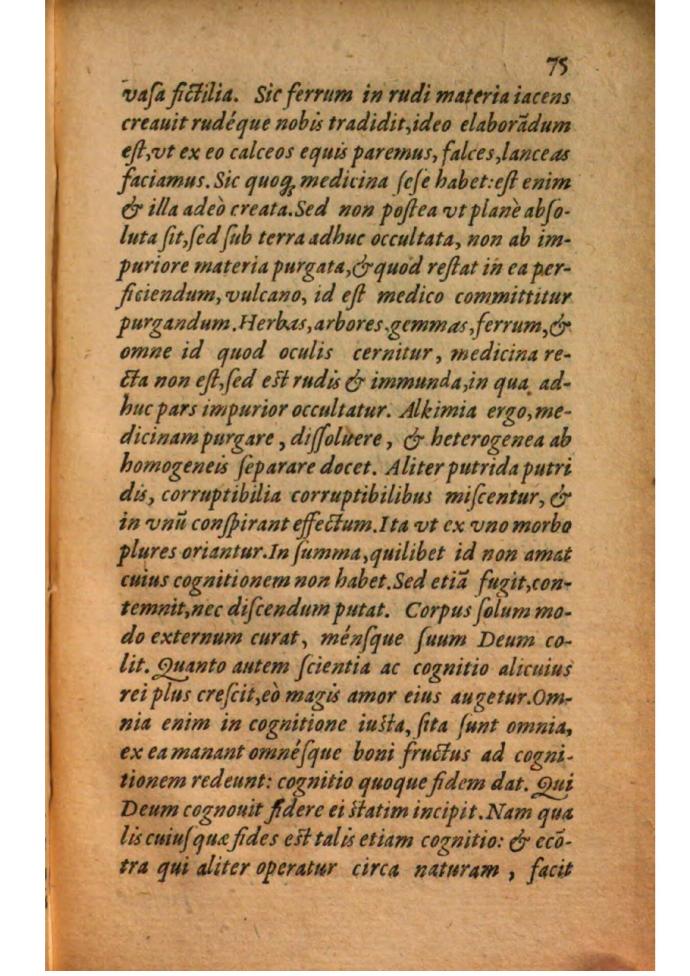 75
vaſa fictilia. Sic ferrum in rudi materia iacens
creauit rudéque nobis tradidit,ideo elaborãdum
eſt,vt ex eo calceos equis paremus, falces,lanceas
faciamus. Sic quoq; medicina ſeſe habet:eſt enim
& illa adeò creata.Sed non poſtea vt planè abſo-
luta ſit,ſed ſub terra adhuc occultata, non ab im-
puriore materia purgata,& quod reſtat in ea per-
ficiendum, vulcano, id eſt medico committitur
purgandum.Herbas,arbores,gemmas,ferrum,&
omne id quod oculis cernitur, medicina re-
cta non eſt,ſed eſt rudis & immunda,in qua ad-
huc pars impurior occultatur. Alkimia ergo,me-
dicinam purgare, diſſoluere, & heterogenea ab
homogeneis ſeparare docet. Aliter putrida putri
dis, corruptibilia corruptibilibus miſcentur, &
in vnũ conſpirant effectum.Ita vt ex vno morbo
plures oriantur.In ſumma,quilibet id non amat
cuius cognitionem non habet.Sed etiã fugit,con-
temnit,nec diſcendum putat. Corpus ſolum mo-
do externum curat, ménſque ſuum Deum co-
lit. Quanto autem ſcientia ac cognitio alicuius
rei plus creſcit,eò magis amor eius augetur.Om-
nia enim in cognitione iuſta, ſita ſunt omnia,
ex ea manant omnéſque boni fructus ad cogni-
tionem redeunt: cognitio quoque fidem dat. Qui
Deum cognouit fidere ei ſtatim incipit.Nam qua
lis cuiuſquæ fides eſt talis etiam cognitio: & ecõ-
tra qui aliter operatur circa naturam, facit